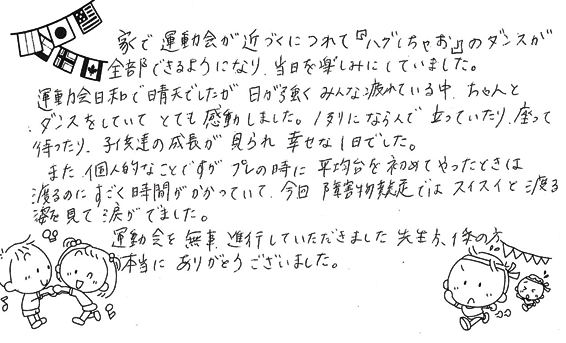 家で運動会が近づくにつれて『ハグしちゃお』のダンスが
全部できるようになり、当日を楽しみにしていました。
運動会日和で晴天でしたが 日が強く みんな疲れている中、ちゃんと
ダンスをしていて とても 感動しました。1列にならんで 立っていたり、座って
待ったり、子供達の成長が 見られ 幸せな1日でした。
また、個人的なことですが プレの時に 平均台を初めてやったときは
渡るのにすごく時間がかかっていて、今回 障害物競走では スイスイと渡る
姿を見て 涙がでました。
運動会を 無事 進行していただきました 先生方、係の方
本当に ありがとうございました。